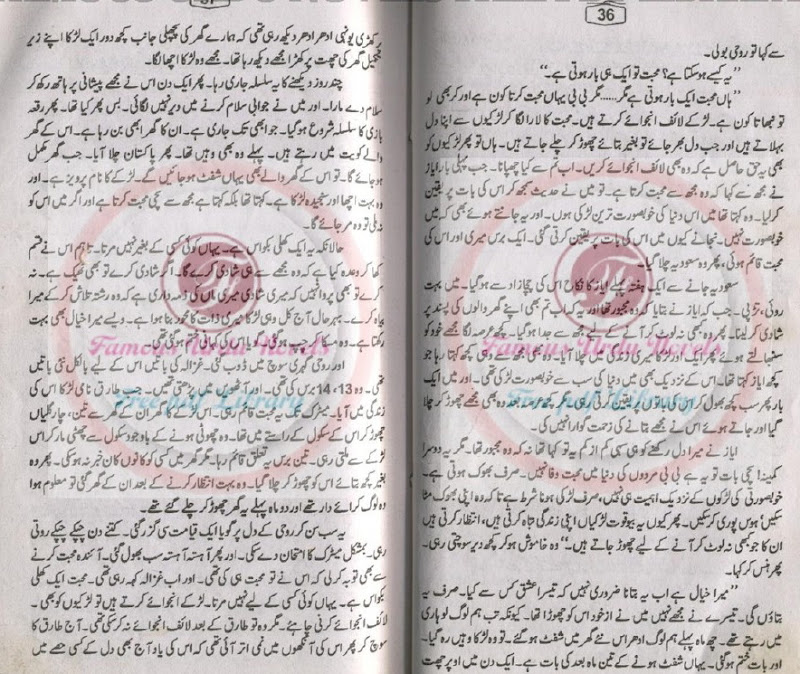 36
سے کہا تو روحی بولی۔
”یہ کیسے ہو سکتا ہے؟ محبت تو ایک ہی بار ہوتی ہے۔“
”ہاں محبت ایک بار ہوتی ہے مگر...... مگر بی بی یہاں محبت کرتا کون ہے اور کر بھی لو
تو نبھاتا کون ہے۔ لڑکے لائف انجوائے کرتے ہیں۔ محبت کا لارا لگا کر لڑکیوں سے اپنا دل
بہلاتے ہیں اور جب دل بھر جائے تو بغیر بتائے چھوڑ کر چلے جاتے ہیں۔ ہاں تو پھر لڑکیوں کو
بھی یہ حق حاصل ہے کہ وہ بھی لائف انجوائے کریں۔ اب تم سے کیا چھپانا۔ جب پہلی بار ایاز
نے مجھ سے کہا کہ وہ مجھ سے محبت کرتا ہے۔ تو میں نے حدیث سمجھ کر اس کی بات پر یقین
کر لیا۔ وہ کہتا تھا میں اس دنیا کی خوبصورت ترین لڑکی ہوں۔ اور یہ جانتے ہوئے بھی کہ میں
خوبصورت نہیں۔ نجانے کیوں میں اس کی بات پر یقین کرتی گئی۔ ایک برس میری اور اس کی
محبت قائم ہوئی، پھر وہ سعودیہ چلا گیا۔
سعودیہ جانے سے ایک ہفتہ پہلے ایاز کا نکاح اس کی چچازاد سے ہو گیا۔ میں بہت
روئی، تڑپی۔ جب کہ ایاز نے بتایا کہ وہ مجبور تھا اور یہ کہ اب تم بھی اپنے گھر والوں کی پسند پر
شادی کر لینا۔ پھر وہ بھی نہ لوٹ کر آنے کے لیے مجھ سے جدا ہو گیا۔ کچھ عرصہ لگا مجھے خود کو
سنبھالتے ہوئے پھر ایک اور لڑکا میری زندگی میں چلا آیا۔ وہ بھی مجھ سے وہی کچھ کہتا رہا جو
کچھ ایاز کہتا تھا۔ اس کے نزدیک بھی میں دنیا کی سب سے خوبصورت لڑکی تھی۔ اور میں ایک
بار پھر سب کچھ بھول کر اس کی باتوں پر یقین کرتی رہی۔ مگر کچھ عرصہ بعد وہ بھی مجھے چھوڑ کر چلا
گیا اور جاتے ہوئے اس نے مجھے بتانے کی زحمت گوارا نہیں کی۔
ایاز نے میرا دل رکھنے کو ہی سہی کم از کم یہ تو کہا تھا نہ کہ وہ مجبور تھا۔ مگر یہ دوسرا
کمینہ! سچی بات تو یہ ہے بی بی مردوں کی دنیا میں محبت وفا نہیں۔ صرف بھوک ہوتی ہے۔
خوبصورتی کی لڑکوں کے نزدیک اہمیت ہی نہیں، صرف لڑکی ہونا شرط ہے تا کہ وہ اپنی بھوک مٹا
سکیں‘ ہوس پوری کر سکیں۔ پھر کیوں یہ بیوقوف لڑکیاں اپنی زندگی تباہ کرتی ہیں، انتظار کرتی ہیں
ان کا جو بھی نہ لوٹ کر آنے کے لیے چھوڑ جاتے ہیں۔“ وہ خاموش ہو کر کچھ دیر سوچتی رہی۔
پھر ہنس کر کہا۔
”میرا خیال ہے اب یہ بتانا ضروری نہیں کہ تیسرا عشق کس سے کیا۔ صرف یہ
بتاؤں گی۔ تیسرے نے مجھے نہیں میں نے از خود اس کو چھوڑا تھا۔ کیونکہ تب ہم لوگ لوہاری
میں رہتے تھے۔ چھ ماہ پہلے ہم لوگ ادھر اس نئے گھر میں شفٹ ہو گئے۔ تو وہ لڑکا وہیں رہ گیا۔
اور بات ختم ہو گئی۔ یہاں شفٹ ہونے کے تین ماہ بعد کی بات ہے۔ ایک دن میں اوپر چھت
پر کھڑی یونہی ادھر ادھر دیکھ رہی تھی کہ ہمارے گھر کی پچھلی جانب کچھ دور ایک لڑکا اپنے زیر
تکمیل گھر کی چھت پر کھڑا مجھے دیکھ رہا تھا۔ مجھے وہ لڑکا اچھا لگا۔
چند روز دیکھنے کا یہ سلسلہ جاری رہا۔ پھر ایک دن اس نے مجھے پیشانی پر ہاتھ رکھ کر
سلام دے مارا۔ اور میں نے جوابی سلام کرنے میں دیر نہیں لگائی۔ بس پھر کیا تھا۔ پھر رقعہ
بازی کا سلسلہ شروع ہو گیا۔ جو ابھی تک جاری ہے۔ ان کا گھر ابھی بن رہا ہے۔ اس کے گھر
والے کویت میں رہتے ہیں۔ پہلے وہ بھی وہیں تھا۔ پھر پاکستان چلا آیا۔ جب گھر مکمل
ہو جائے گا۔ تو اس کے گھر والے بھی یہاں شفٹ ہو جائیں گے۔ لڑکے کا نام پرویز ہے۔ اور
وہ بہت اچھا اور سنجیدہ لڑکا ہے۔ کہتا تھا بلکہ کہتا ہے مجھ سے سچی محبت کرتا ہے اور اگر میں اس کو
نہ ملی تو وہ مر جائے گا۔
حالانکہ یہ ایک کھلی بکواس ہے۔ یہاں کوئی کسی کے بغیر نہیں مرتا۔ تاہم اس نے قسم
کھا کر وعدہ کیا ہے کہ وہ مجھ سے ہی شادی کرے گا۔ اگر شادی کرے تو بھی ٹھیک ہے۔ نہ
کرے تو بھی پروا نہیں کہ میری شادی میری ماں کی ذمہ داری ہے کہ وہ رشتہ تلاش کر کے میرا
بیاہ کرے۔ بہر حال آج کل وہی لڑکا میری ذات کا محور بنا ہوا ہے۔ ویسے میرا خیال بھی بہت
رکھتا ہے۔ وہ مسکرا کر چپ ہو گئی۔ گویا اس کی کہانی ختم ہو گئی تھی۔
اور روحی گہری سوچ میں ڈوب گئی۔ غزالہ کی باتیں اس کے لیے بالکل نئی باتیں
تھی۔ وہ 13، 14 برس کی تھی۔ اور آٹھویں میں پڑھتی تھیں۔ جب طارق نامی لڑکا اس کی
زندگی میں آیا۔ میٹرک تک یہ محبت قائم رہی۔ اس لڑکے کا گھر ان کے گھر سے تین، چار گلیاں
چھوڑ کر اس کے سکول کے راستے میں تھا۔ وہ چھوٹی ہونے کے باوجود سکول سے چھٹی مار کر اس
لڑکے سے ملتی رہی۔ تین برس یہ تعلق قائم رہا۔ مگر گھر میں کسی کو کانوں کان خبر نہ ہو سکی۔ پھر وہ
بغیر کچھ بتائے اس کو چھوڑ کر چلا گیا۔ وہ بہت انتظار کرنے کے بعد ان کے گھر گئی تو معلوم ہوا
وہ لوگ کرائے دار تھے اور دو ماہ پہلے یہ گھر چھوڑ کر چلے گئے تھے۔
یہ سب سن کر روحی کے دل پر گویا ایک قیامت سی گزر گئی۔ کتنے دن چپکے چپکے روتی
رہی۔ بمشکل میٹرک کا امتحان دے سکی۔ اور پھر آہستہ آہستہ سب بھول گئی۔ آئندہ محبت کرنے
سے بھی تو بہ کر لی کہ اس نے تو محبت ہی کی تھی۔ اور اب غزالہ کہہ رہی تھی۔ محبت ایک کھلی
بکواس ہے۔ یہاں کوئی کسی کے لیے نہیں مرتا۔ لڑکے انجوائے کرتے ہیں تو لڑکیوں کو بھی۔
لائف انجوائے کرنی چاہئے۔ مگر وہ تو طارق کے بعد لائف انجوائے نہ کر سکی تھی۔ آج طارق کا
سوچ کر پھر اس کی آنکھوں میں نمی اتر آئی تھی کہ اس کی یاد آج بھی دل کے کسی حصے میں
Famous Urdu Novels
Free pdf Library
Famous Urdu Novels
Free pdf Library